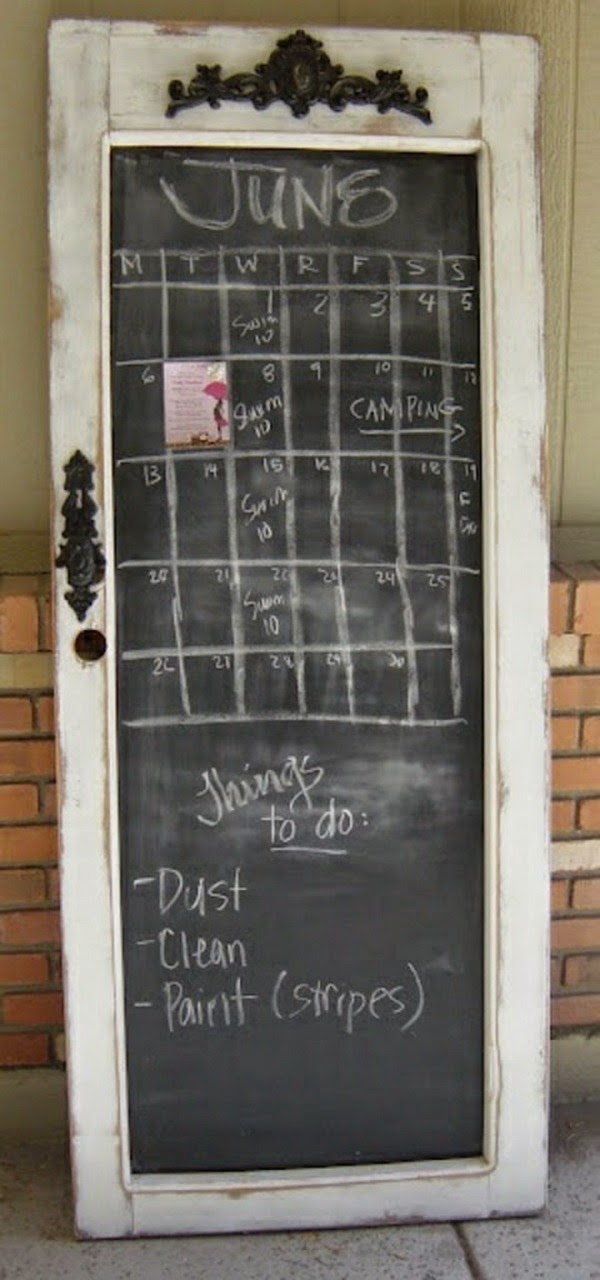 JUNE
M T W R F S S
1 2 3 4 5
Swim
10
6 8 9 10 11 12
Swim CAMPING
10
13 14 15 16 17 18 19
Swim F
10
20 21 22 23 24 25
Swim
10
26 27 28 29 30
Things
to do:
- Dust
- Clean
- Paint (stripes)